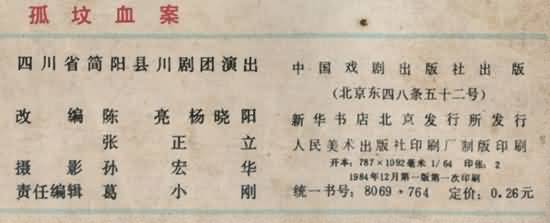 孤坟血案
四川省简阳县川剧团演出
改编 陈亮 杨晓阳
张正立
摄影 孙宏华
责任编辑 葛小刚
中国戏剧出版社出版
(北京东四八条五十二号)
新华书店北京发行所发行
人民美术出版社印刷厂制版印刷
开本：787×1092毫米 1/64 印张：2
1984年12月第一版第一次印刷
统一书号：8069·764 定价：0.26元